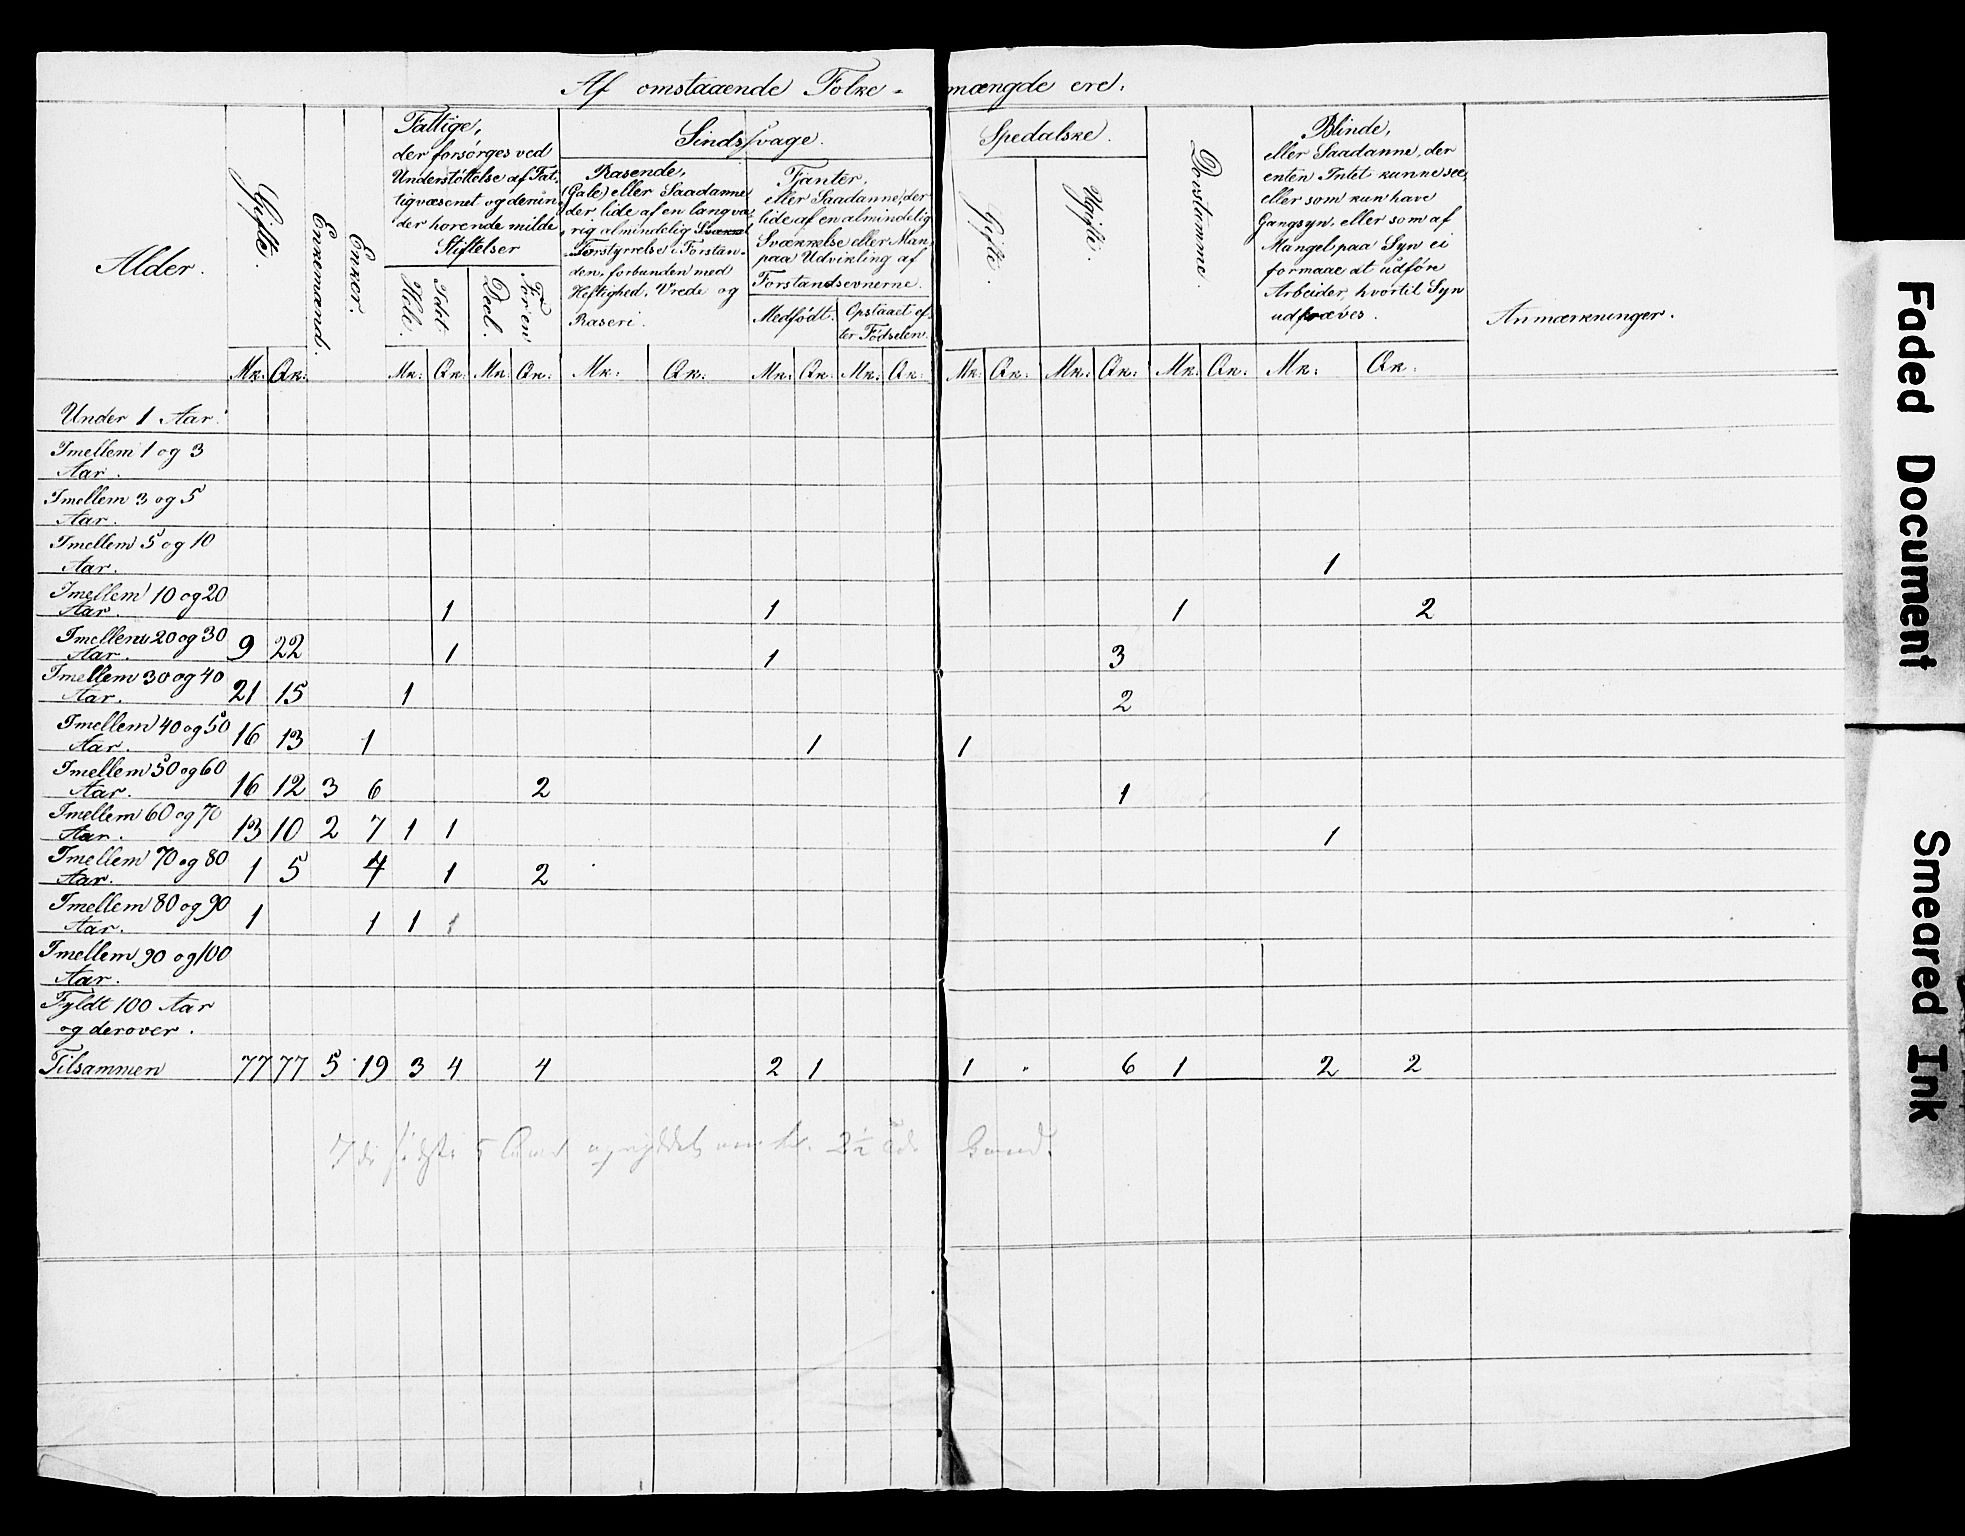 Af omstaaende Folke- mængde ere.
Alder.
Gifte.
Enkemænd.
Enker.
Fattige,
der forsørges ved
Understøttelse af Fat-
tigvæsenet og derun-
der hørende milde
Stiftelser
Heelt
Deel.
For en
Sindssvage.
Rasende,
(Gale) eller Saadanne
der lide af en langva-
rig almindelig
Forstyrrelse i Forstan-
den, forbunden med
Heftighed, Vrede og
Raseri.
Fjanter,
eller Saadanne, der
lide af en almindelig
Svækkelse eller Man-
paa Udvikling af
Forstandsevnerne.
Medfødt.
Opstaaet ef-
ter Fødselen.
Spedalske.
Gifte.
Ugifte.
Døvstumme.
Blinde,
eller Saadanne, der
enten Intet kunne see,
eller som kun have
Gangsyn, eller som af
Mangel paa Syn ei
formaae at udføre
Arbeider, hvortil Syn
udkræves.
Anmærkninger.
Mk: Qk: Mk: Qk: Mk: Qk: Mk: Qk: Mk: Qk: Mk: Qk: Mk: Qk: Mk: Qk: Mk: Qk: Mk: Qk:
Under 1 Aar.
Imellem 1 og 3
Aar.
Imellem 3 og 5
Aar.
Imellem 5 og 10
Aar. 1
Imellem 10 og 20
Aar. 1 1 1 2
Imellem 20 og 30
Aar. 9 22 1 1 3
Imellem 30 og 40
Aar. 21 15 1 2
Imellem 40 og 50
Aar. 16 13 1 1 1
Imellem 50 og 60
Aar. 16 12 3 6 2 1
Imellem 60 og 70
Aar. 13 10 2 7 1 1 1
Imellem 70 og 80
Aar. 1 5 4 1 2
Imellem 80 og 90
Aar. 1 1 1 1
Imellem 90 og 100
Aar.
Fyldt 100 Aar
og derover.
Tilsammen 77 77 5 19 3 4 4 2 1 1 6 1 2 2
Faded Document
Smeared Ink